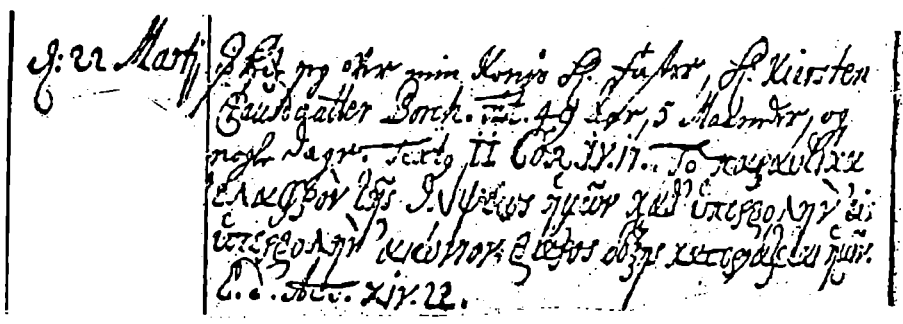 d: 22 Martij
jeg over min Konis S. Faster, S. Kirsten
Clausdatter Borch. Æt. 49 Aar, 5 Maaneder, og
nogle Dage. Textq II Cor. IV. 17. Τὸ παραυτίκα
ἐλαφρὸν τῆς θλίψεως ἡμῶν καθ' ὑπερβολὴν εἰς
ὑπερβολὴν αἰώνιον βάρος δόξης κατεργάζεται ἡμῖν.
Act. XIV. 22.